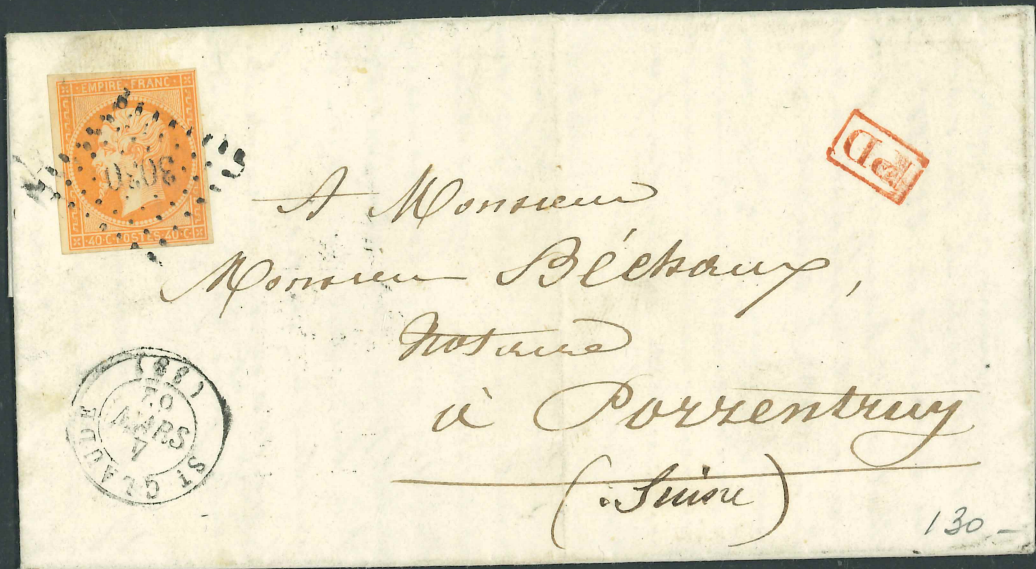 EMPIRE FRANC
3030
40·C·POSTES 40·C
PD
A Monsieur
Monsieur Béchaux,
Notaire
à Porrentruy
(Suisse)
ST CLAUDE
MARS
(38)
130 –